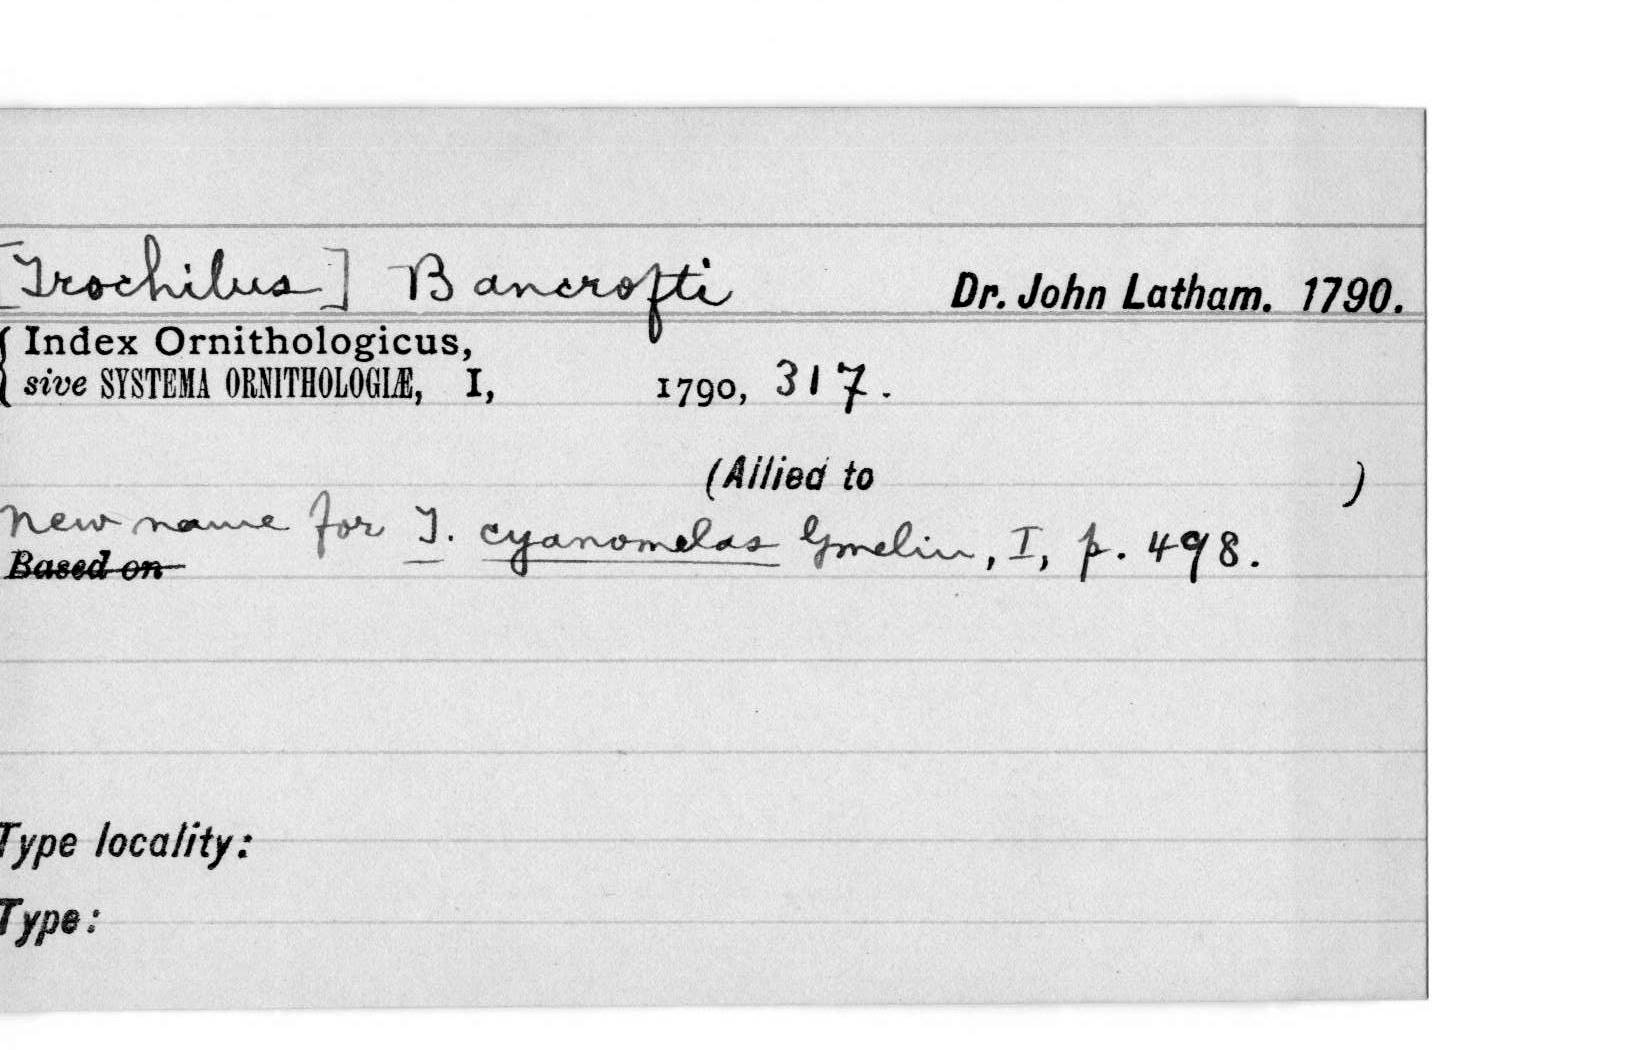 [Trochilus] Bancrofti Dr. John Latham. 1790.
{ Index Ornithologicus,
sive SYSTEMA ORNITHOLOGIÆ, I, 1790, 317.
(Allied to )
New name for T. cyanomelas Gmelin, I, p. 498.
Based on
Type locality:
Type: